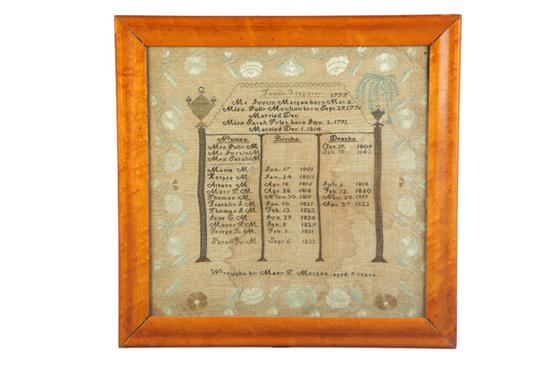 Family Register
1777
Mr. Justin Morgan born Mar. 8.
Miss. Polly Moulton born Sept. 27. 1776
Married Dec
Miss Sarah Tyler born Jan. 2. 1791.
Married Dec. 1. 1814.
Names. Births. Deaths.
Mrs. Polly M. Oct. 17. 1809
Mr. Justin M.
Mrs. Sarah M.
Maria M. Jan. 17. 1801
Horace M. Jan. 24. 1803
Albert M. 1818
Mary T. M. Apr. 28. 1818 Feb. 12. 1860
Thomas M. Nov. 30. 1819 Nov. 30. 1819
Franklin J. M. Jan. 10. 1821 Apr. 27. 1822
Thomas J. M. Feb. 13. 1823
Jane E. M. 1826
Jan. 9. 1829
George M. Feb. 3. 1831
Sarah M. Sept. 6. 1833
Wrought by Mary T. Morgan aged years.